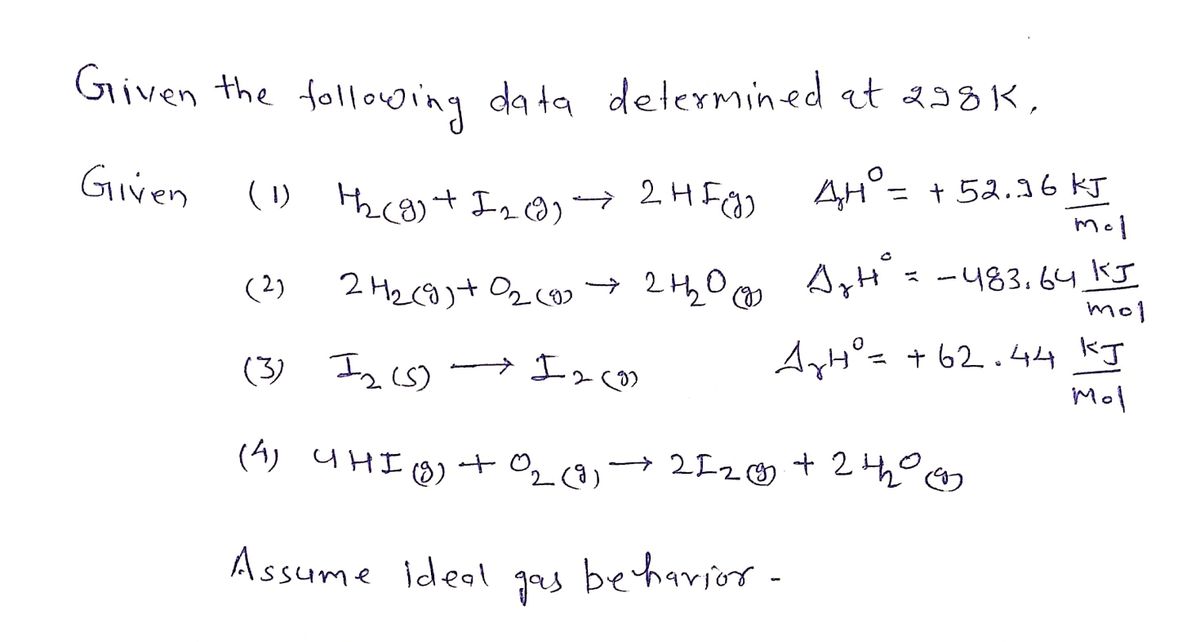 Given the following data determined at 298K.
Given (1) H₂(g) + I₂(g) → 2HI(g) ΔᵣH° = +52.96 kJ/mol
(2) 2H₂(g) + O₂(g) → 2H₂O(g) ΔᵣH° = -483.64 kJ/mol
(3) I₂(s) → I₂(g) ΔᵣH° = +62.44 kJ/Mol
(4) 4HI(g) + O₂(g) → 2I₂(g) + 2H₂O(g)
Assume ideal gas behavior -